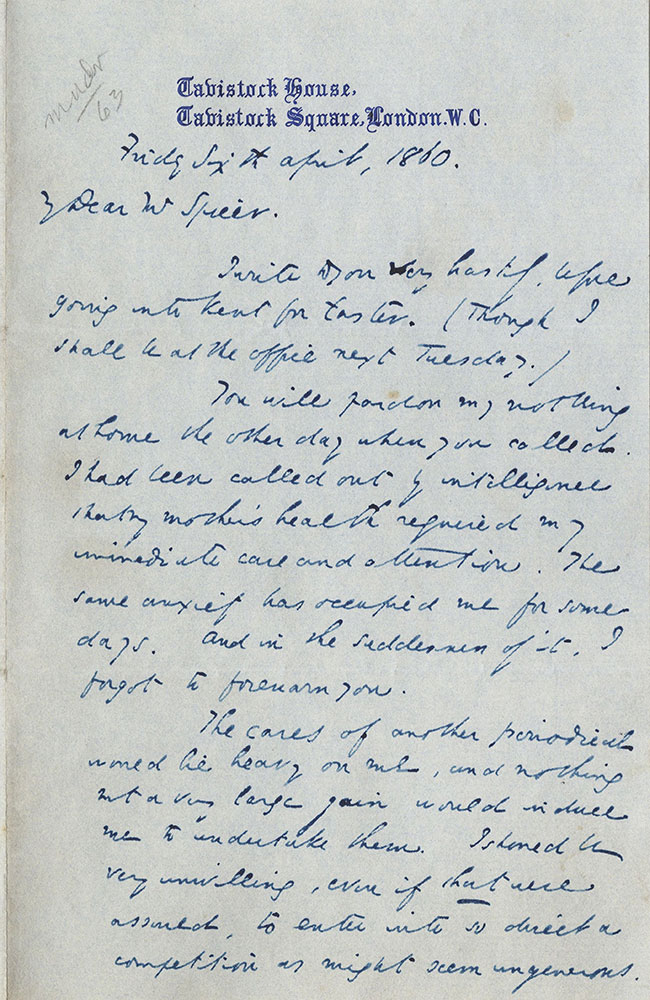 63
Tavistock House,
Tavistock Square, London. W.C.
Friday Sixth April, 1860.
My Dear Mr Spicer.
I write to you very hastily, before
going into Kent for Easter. (Though I
shall be at the office next Tuesday.)
You will pardon my not being
at home the other day when you called.
I had been called out by intelligence
that my mother's health required my
immediate care and attention. The
same anxiety has occupied me for some
days. And in the suddenness of it, I
forgot to forewarn you.
The cares of another periodical
would lie heavy on me, and nothing
but a very large gain would induce
me to undertake them. I should be
very unwilling, even if that were
assured, to enter into so direct a
competition as might seem ungenerous.